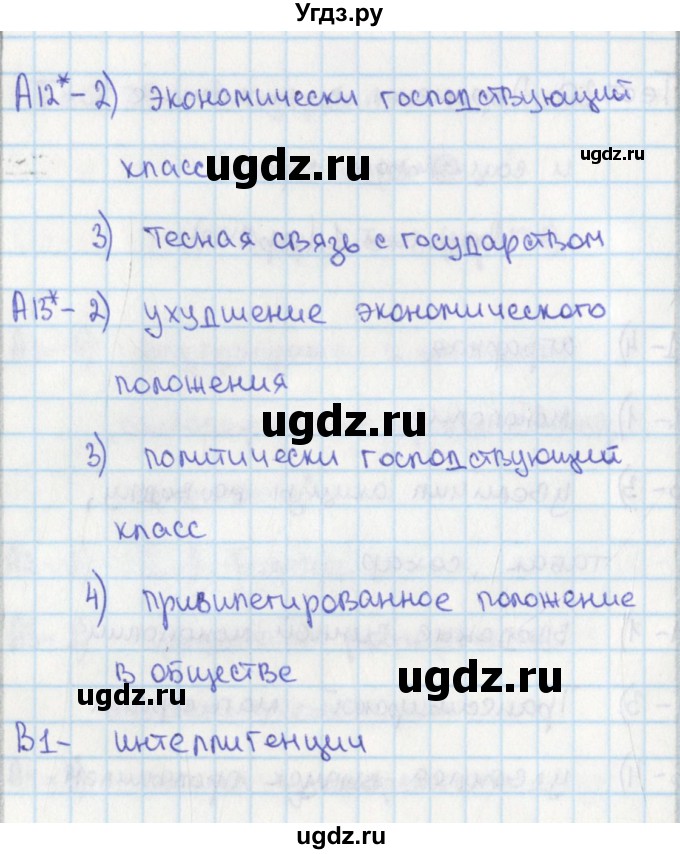 Угдз.ру
А12* - 2) экономически господствующий
класс
ugdz.ru
ugdz.ru
3) тесная связь с государством
А13* - 2) ухудшение экономического
положения
ugdz.ru
3) политически господствующий
класс
4) привилегированное положение
ugdz.ru
в обществе
ugdz.ru
В1 - интеллигенции
ugdz.ru
ugdz.ru